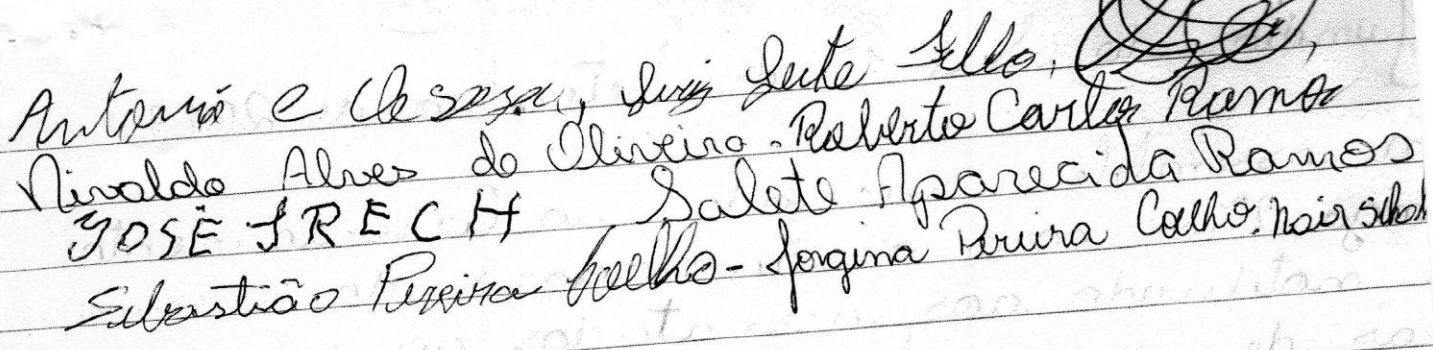 Antonio C de Souza, Luiz Leite Fillo,
Nivaldo Alves de Oliveira - Roberto Carlos Ramos
JOSÉ FRECH Salete Aparecida Ramos
Sebastião Pereira Coelho - Jorgina Pereira Coelho. Nair